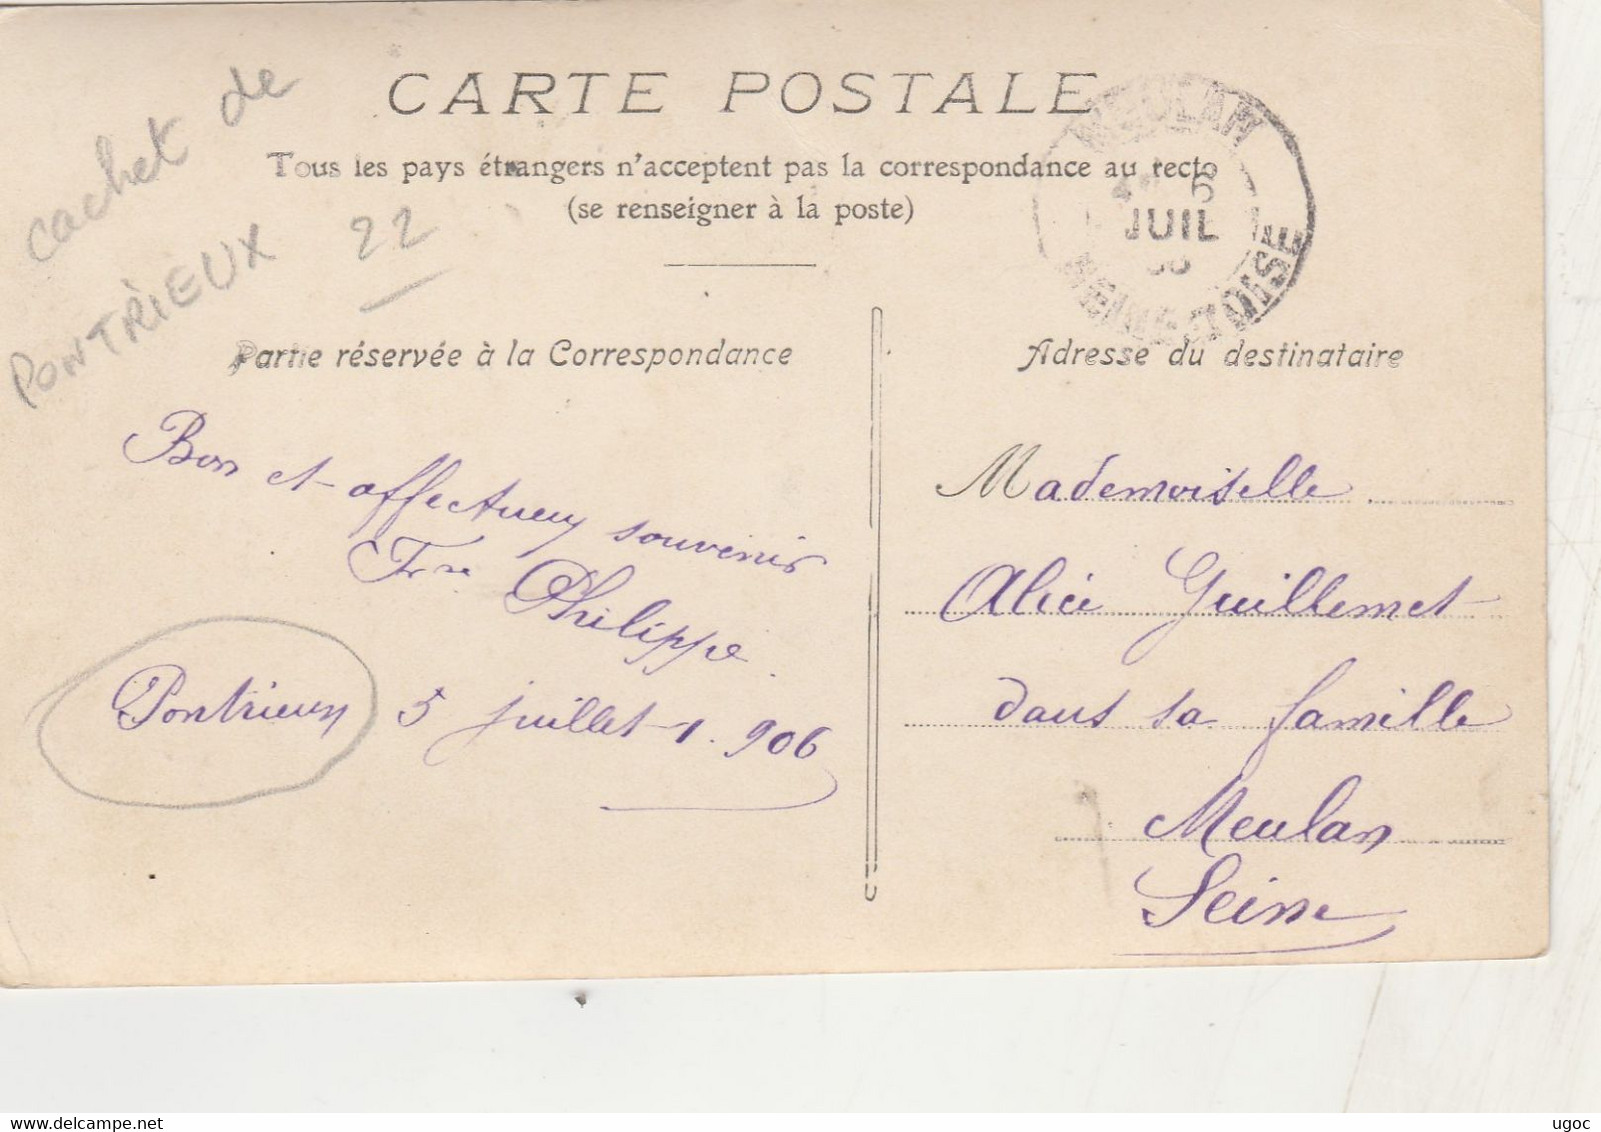 CARTE POSTALE
Tous les pays étrangers n'acceptent pas la correspondance au recto
(se renseigner à la poste)
cachet de
PONTRIEUX 22
MEULAN
6
JUIL
SEINE-ET-OISE
Partie réservée à la Correspondance
Bon et affectueux souvenir
Philippe
Pontrieux 5 juillet 1.906
Adresse du destinataire
Mademoiselle
Alice Guillemet
dans sa famille
Meulan
Seine
ugoc